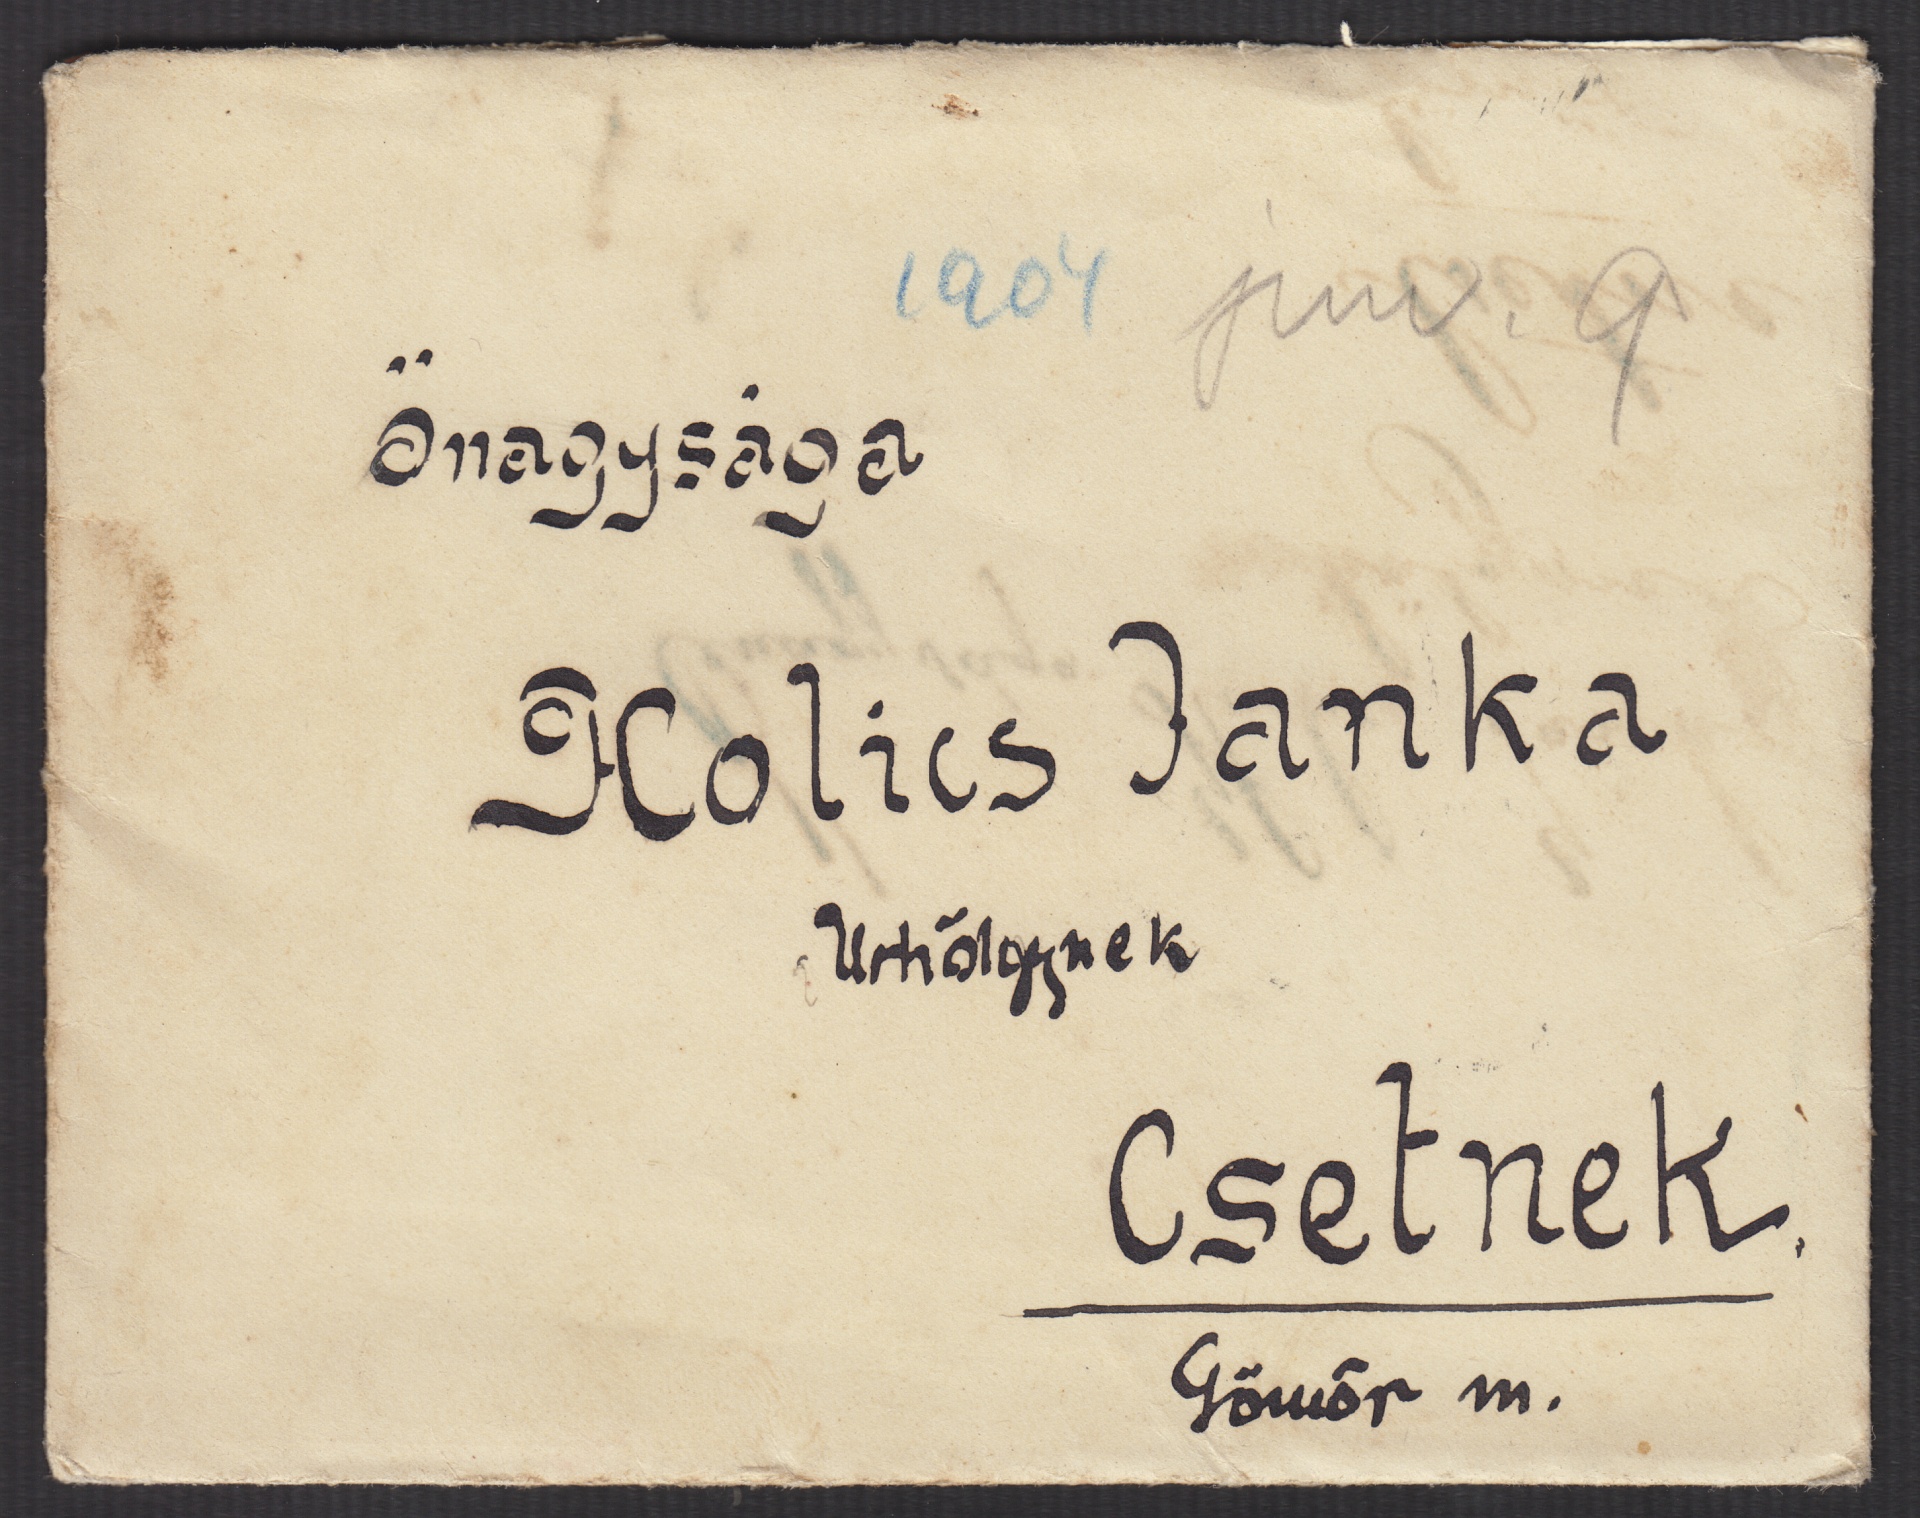 1904 jun. 9
Önagysága
Kolics Janka
Urhölgynek
Csetnek.
Gömör m.